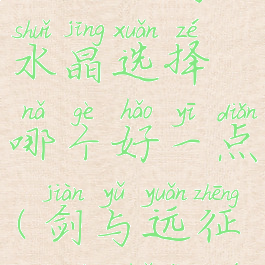 shuǐ jīng xuǎn zé
水晶选择
nǎ ge hǎo yī diǎn
哪个好一点
jiàn yǔ yuǎn zhēng
(剑与远征